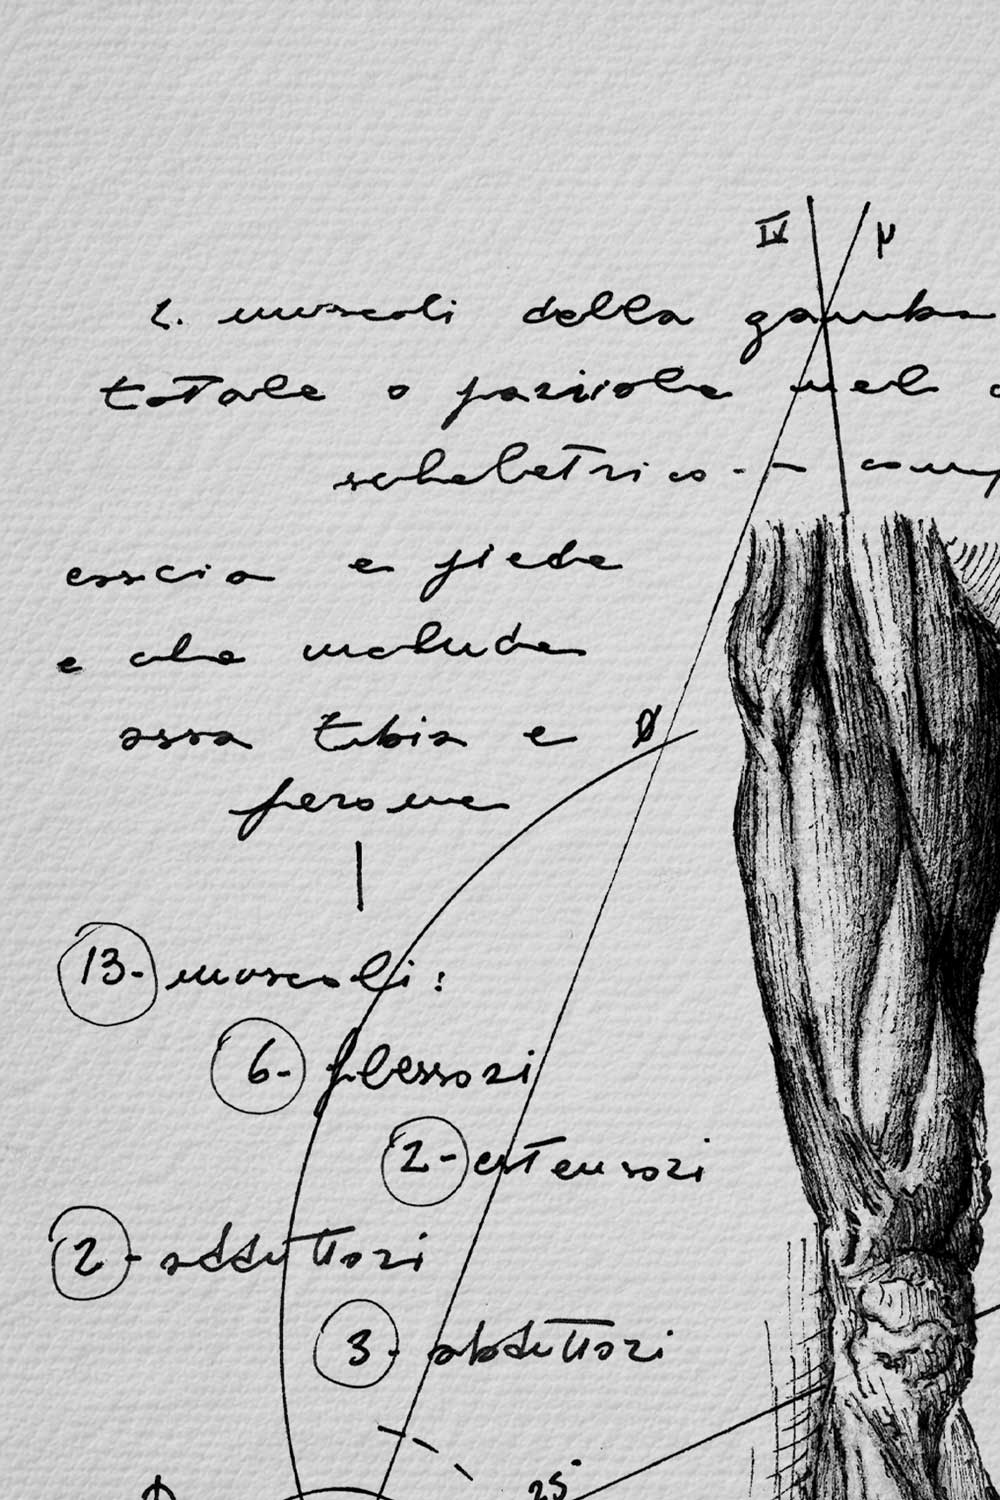 IV μ
2. muscoli della gamba
totale o parziale nel
scheletrico -- comp
coscia e piede
e che include
ossa tibia e Ø
perone
13- muscoli:
6- flessori
2- estensori
2- adduttori
3- abduttori
25°